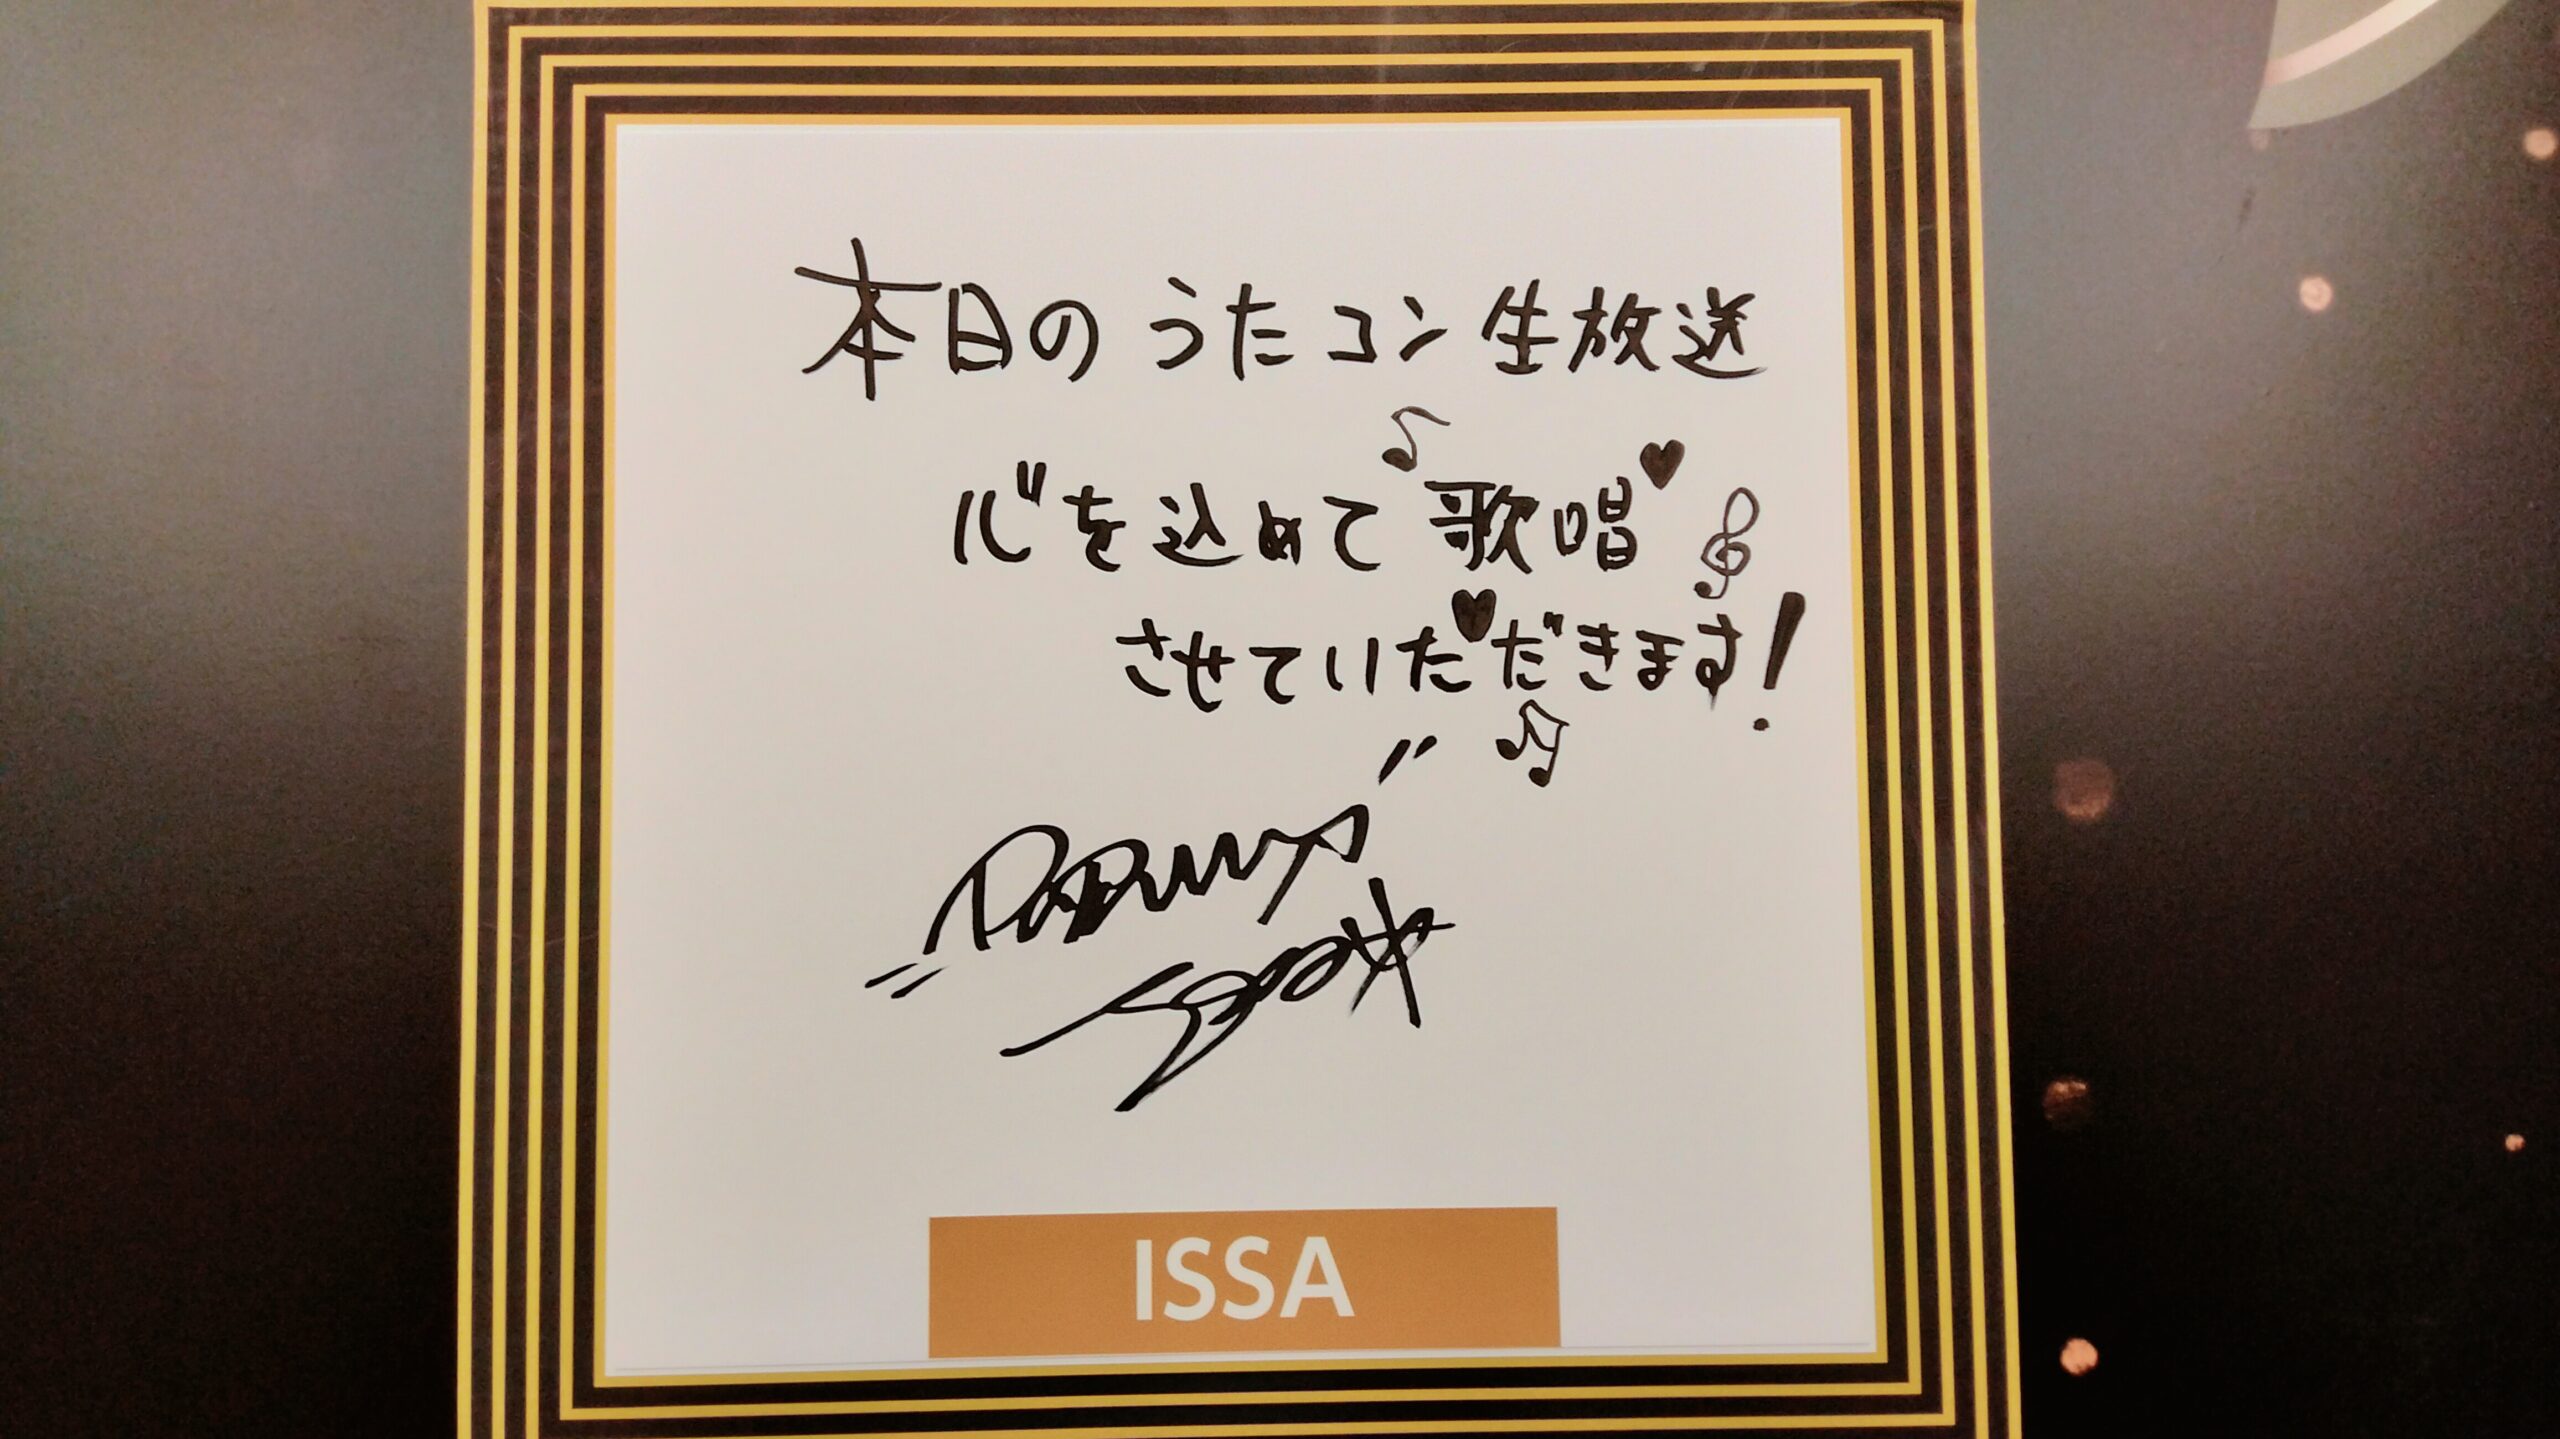 本日の うたコン 生放送
心を込めて 歌唱
させていただきます!
ISSA